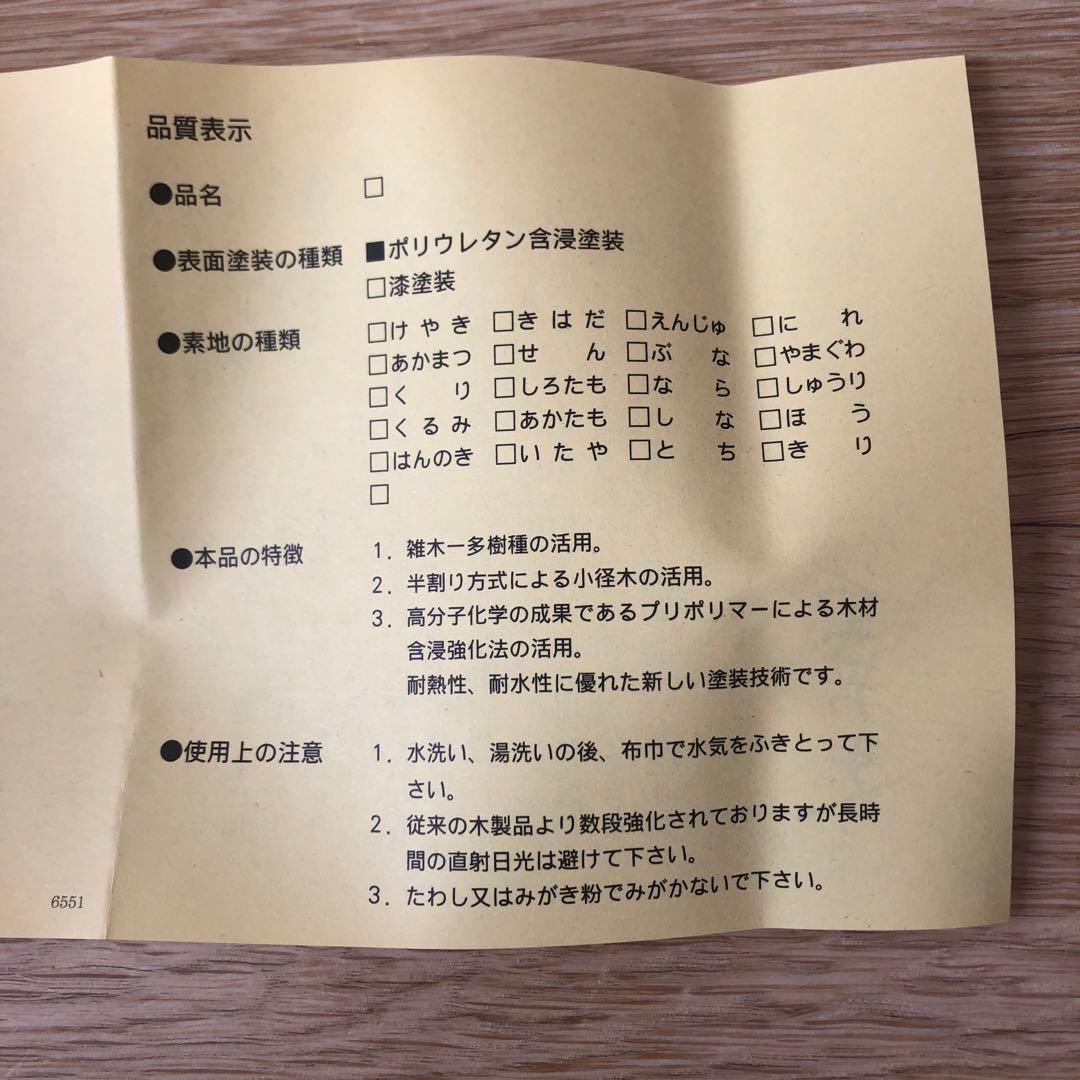 品質表示
●品名 □
●表面塗装の種類 ■ポリウレタン含浸塗装
□漆塗装
●素地の種類 □けやき □きはだ □えんじゅ □にれ
□あかまつ □せん □ぶな □やまぐわ
□くり □しろたも □なら □しゅうり
□くるみ □あかたも □しな □ほう
□はんのき □いたや □とち □きり
□
●本品の特徴 1. 雑木ー多樹種の活用。
2. 半割り方式による小径木の活用。
3. 高分子化学の成果であるプリポリマーによる木材
含浸強化法の活用。
耐熱性、耐水性に優れた新しい塗装技術です。
●使用上の注意 1. 水洗い、湯洗いの後、布巾で水気をふきとって下
さい。
2. 従来の木製品より数段強化されておりますが長時
間の直射日光は避けて下さい。
3. たわし又はみがき粉でみがかないで下さい。
6551